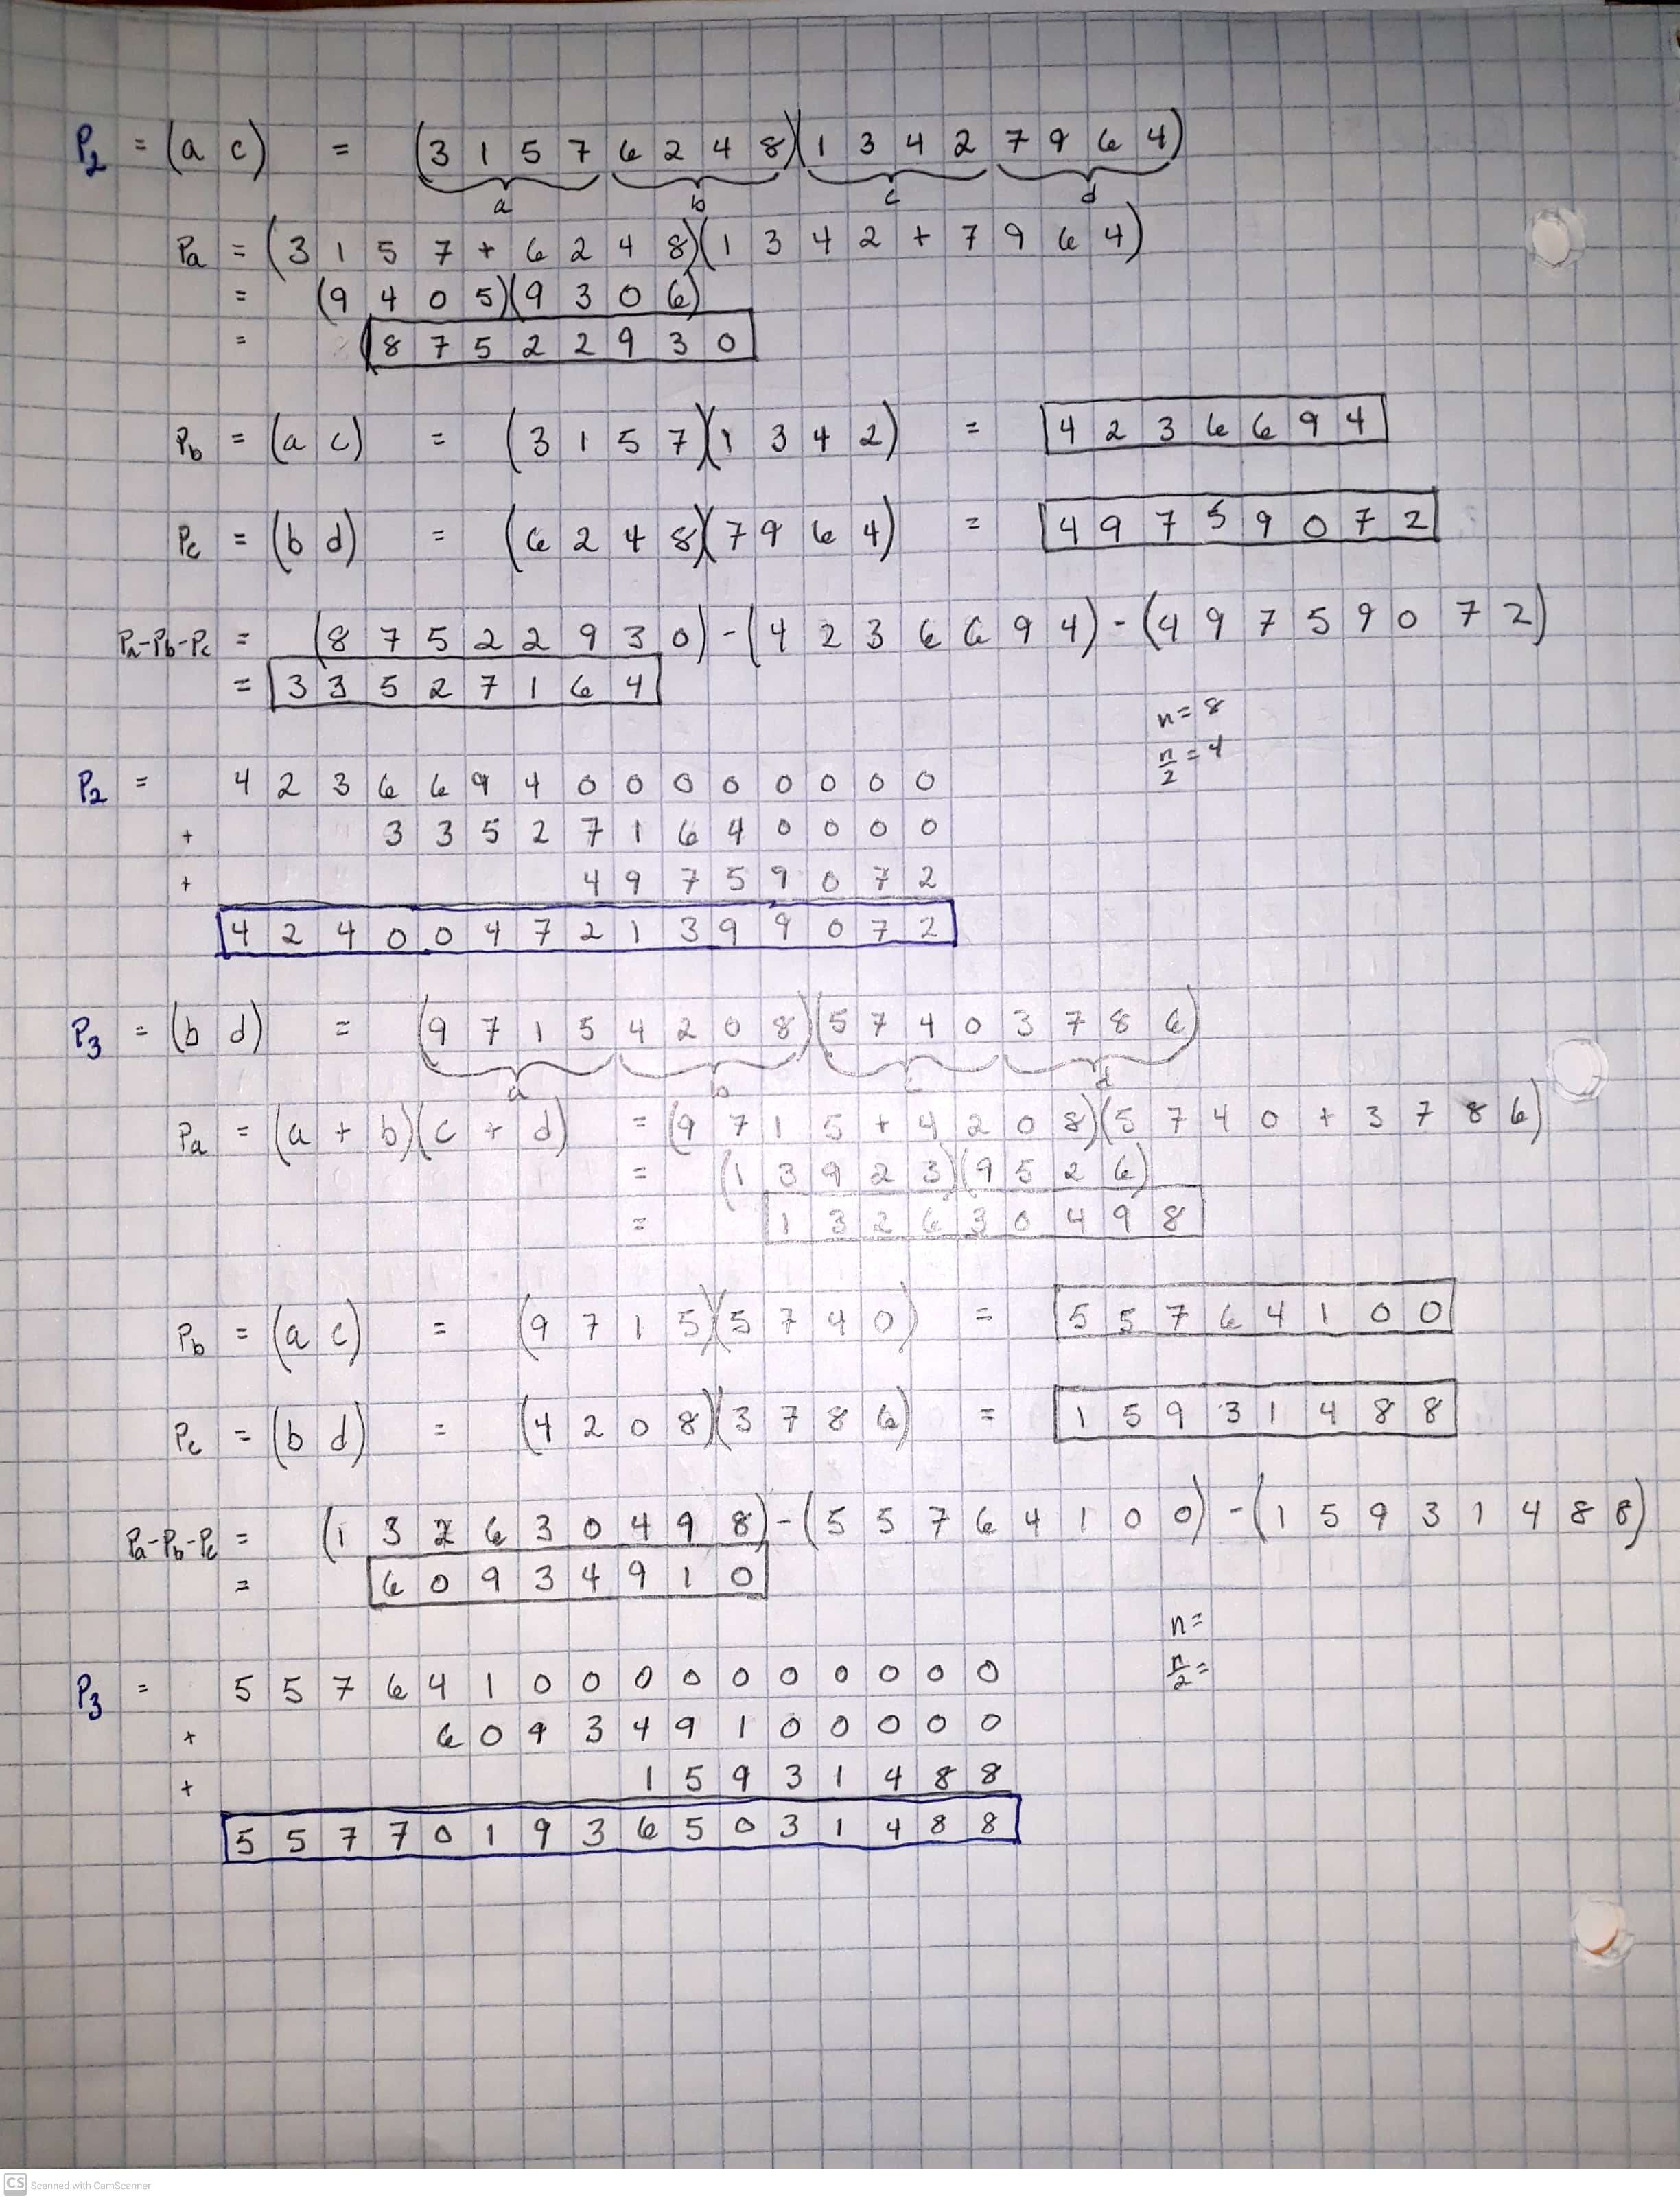 P2 = (a c) = (3 1 5 7 6 2 4 8)(1 3 4 2 7 9 6 4)
a b c d
Pa = (3 1 5 7 + 6 2 4 8)(1 3 4 2 + 7 9 6 4)
= (9 4 0 5)(9 3 0 6)
= 8 7 5 2 2 9 3 0
Pb = (a c) = (3 1 5 7)(1 3 4 2) = 4 2 3 6 6 9 4
Pc = (b d) = (6 2 4 8)(7 9 6 4) = 4 9 7 5 9 0 7 2
Pa-Pb-Pc = (8 7 5 2 2 9 3 0) - (4 2 3 6 6 9 4) - (4 9 7 5 9 0 7 2)
= 3 3 5 2 7 1 6 4
n = 8
n/2 = 4
P2 = 4 2 3 6 6 9 4 0 0 0 0 0 0 0 0
+ 3 3 5 2 7 1 6 4 0 0 0 0
+ 4 9 7 5 9 0 7 2
4 2 4 0 0 4 7 2 1 3 9 9 0 7 2
P3 = (b d) = (9 7 1 5 4 2 0 8)(5 7 4 0 3 7 8 6)
a b c d
Pa = (a + b)(c + d) = (9 7 1 5 + 4 2 0 8)(5 7 4 0 + 3 7 8 6)
= (1 3 9 2 3)(9 5 2 6)
= 1 3 2 6 3 0 4 9 8
Pb = (a c) = (9 7 1 5)(5 7 4 0) = 5 5 7 6 4 1 0 0
Pc = (b d) = (4 2 0 8)(3 7 8 6) = 1 5 9 3 1 4 8 8
Pa-Pb-Pc = (1 3 2 6 3 0 4 9 8) - (5 5 7 6 4 1 0 0) - (1 5 9 3 1 4 8 8)
= 6 0 9 3 4 9 1 0
n =
n/2 =
P3 = 5 5 7 6 4 1 0 0 0 0 0 0 0 0 0 0
+ 6 0 9 3 4 9 1 0 0 0 0 0
+ 1 5 9 3 1 4 8 8
5 5 7 7 0 1 9 3 6 5 0 3 1 4 8 8
CS Scanned with CamScanner